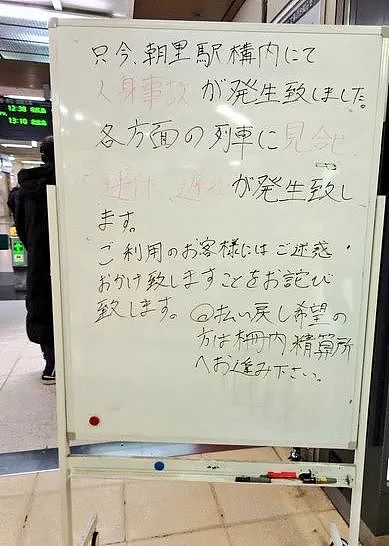 12:38
13:10
只今、朝里駅構内にて
人身事故が発生致しました。
各方面の列車に見合せ
運休 遅れが発生致し
ます。
ご利用のお客様にはご迷惑・
おかけ致しますことをお詫び
致します。@払い戻し希望の
方は柵内精算所
へお進み下さい。